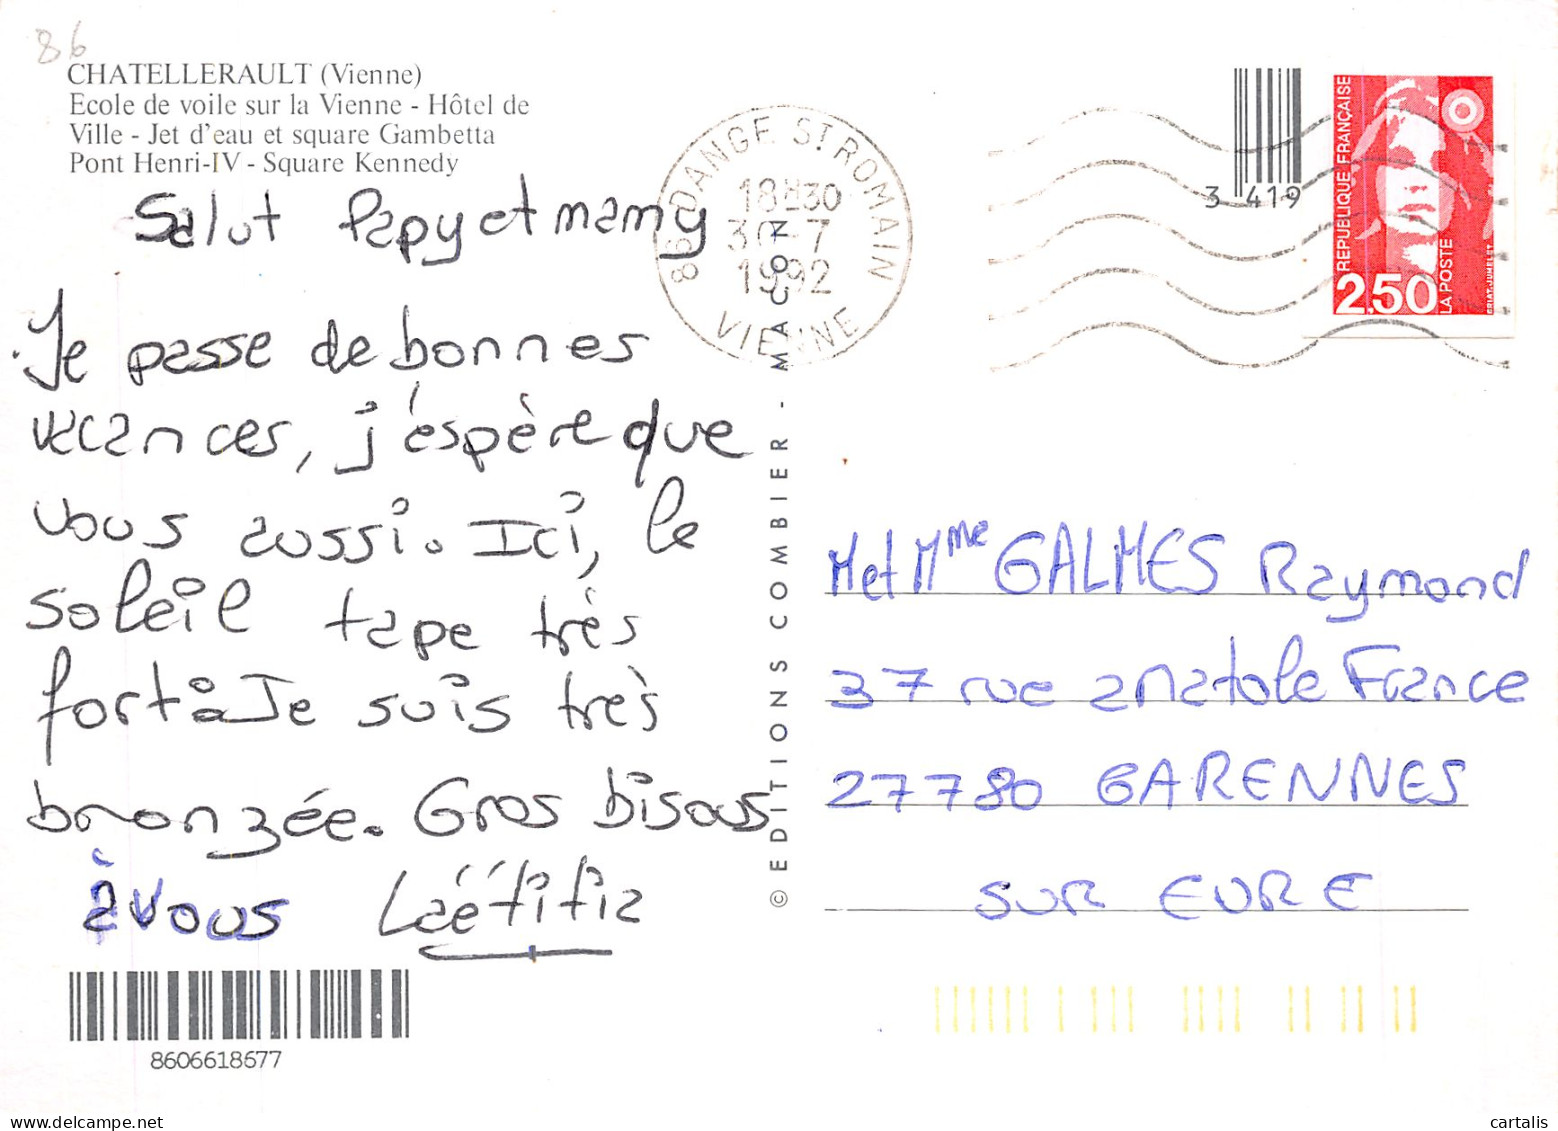 86
CHATELLERAULT (Vienne)
Ecole de voile sur la Vienne - Hôtel de
Ville - Jet d'eau et square Gambetta
Pont Henri-IV - Square Kennedy
Salut Papy et mamy
Je passe de bonnes
vacances, j'éspère que
vous aussi. Ici, le
soleil tape très
fort. Je suis très
bronzée. Gros bisous
à vous Laëtitia
8606618677
© EDITIONS COMBIER - MACON
86 DANGE ST ROMAIN
18H30
30-7
1992
VIENNE
3 419
REPUBLIQUE FRANÇAISE
2,50
LA POSTE
BRIAT-JUMELET
M et Mme GALMES Raymond
37 rue anatole France
27780 GARENNES
SUR EURE
cartalis